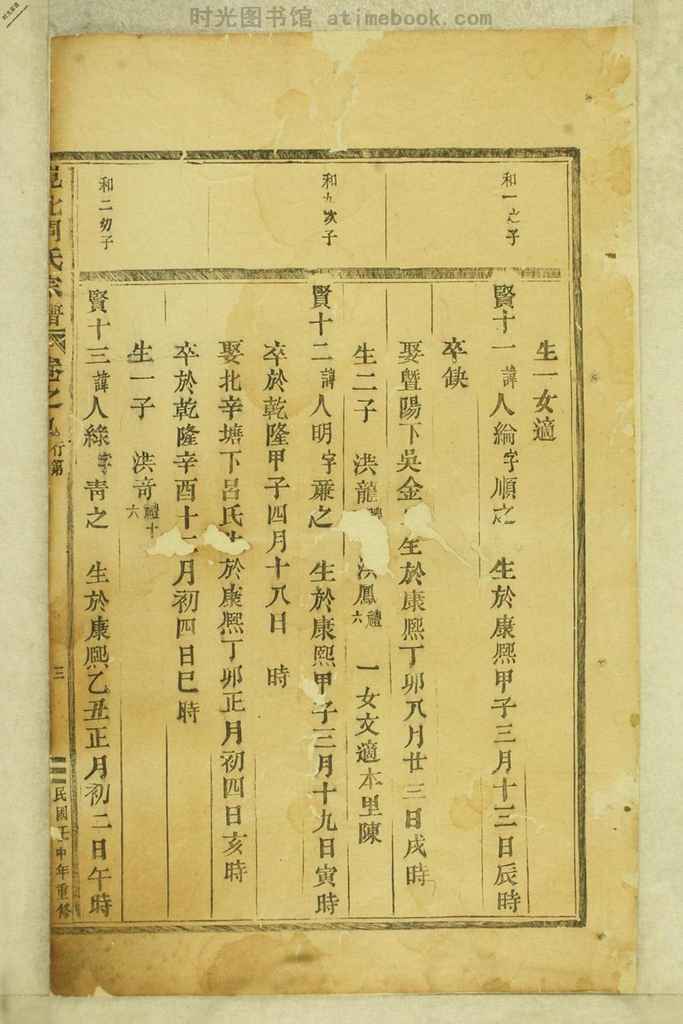 时光图书馆 atimebook.com
生一女適
和一之子
賢十一諱人綸字順之 生於康熙甲子三月十三日辰時
卒缺
娶暨陽下吳金 生於康熙丁卯八月廿三日戌時
生二子 洪龍 洪鳳禮六 一女文適本里陳
和九次子
賢十二諱人明字兼之 生於康熙甲子三月十九日寅時
卒於乾隆甲子四月十八日 時
娶北辛塘下呂氏 於康熙丁卯正月初四日亥時
卒於乾隆辛酉十二月初四日巳時
生一子 洪奇禮十六
和二幼子
賢十三諱人綠字靑之 生於康熙乙丑正月初二日午時
周氏宗譜 卷之 行第 三 民國壬申年重修